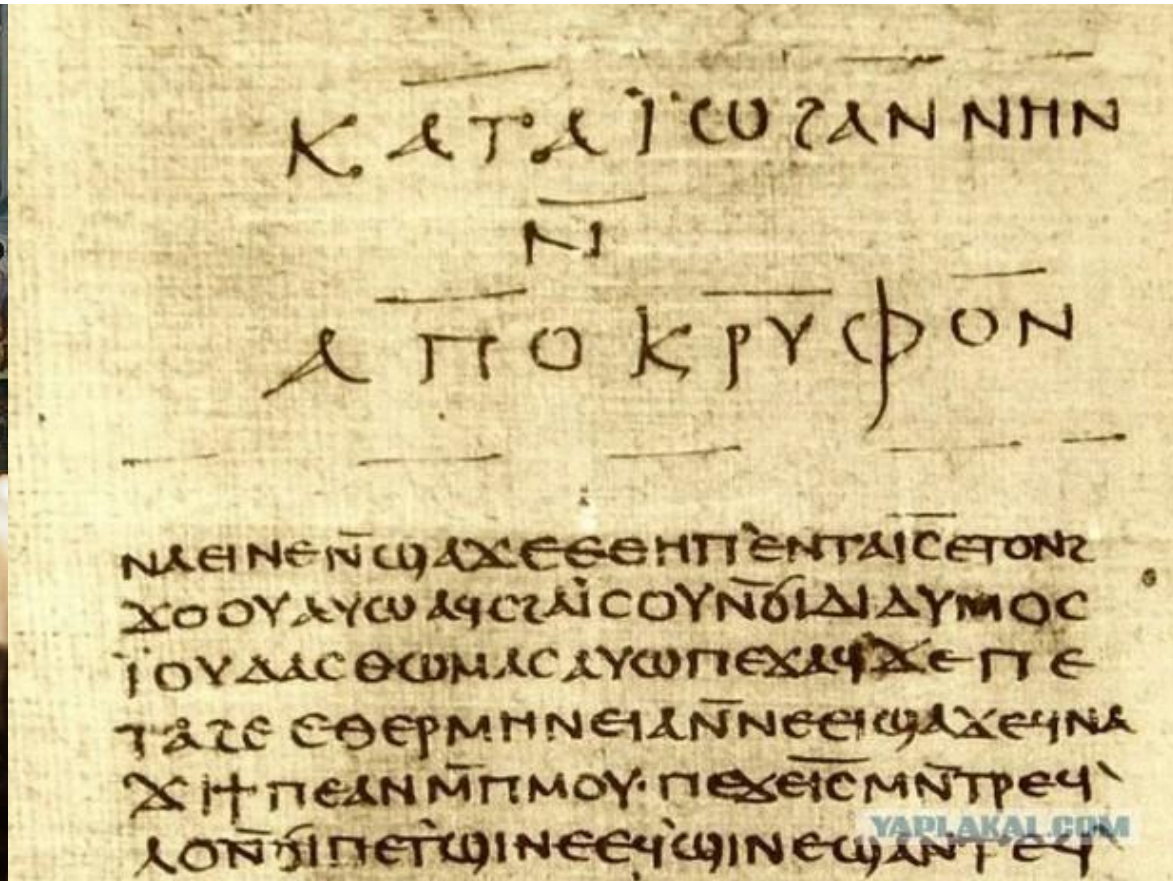 ⲕⲁⲧⲁ ⲓ̈ⲱϩⲁⲛⲛⲏⲛ
ⲛ̄
ⲁⲡⲟⲕⲣⲩⲫⲟⲛ
ⲛⲁⲉⲓⲛⲉⲛⲛ̄ϣⲁϫⲉⲉⲑⲏⲡ`ⲉⲛⲧⲁⲓ̅ⲥ̅ⲉⲧⲟⲛϩ
ϫⲟⲟⲩⲁⲩⲱⲁϥⲥϩⲁⲓ̈ⲥⲟⲩⲛ̄ϭⲓⲇⲓⲇⲩⲙⲟⲥ
ⲓ̈ⲟⲩⲇⲁⲥⲑⲱⲙⲁⲥⲁⲩⲱⲡⲉϫⲁϥϫⲉⲡⲉ
ⲧⲁϩⲉⲉⲑⲉⲣⲙⲏⲛⲉⲓⲁⲛ̄ⲛⲉⲉⲓϣⲁϫⲉϥⲛⲁ
ϫⲓϯⲡⲉⲁⲛⲙ̄ⲡⲙⲟⲩ·ⲡⲉϫⲉⲓ̅ⲥ̅ⲙⲛ̄ⲧⲣⲉϥ`
ⲗⲟⲛ̄ϭⲓⲡⲉⲧ`ϣⲓⲛⲉⲉϥ`ϣⲓⲛⲉϣⲁⲛⲧⲉϥ`
YAPLAKAL.COM